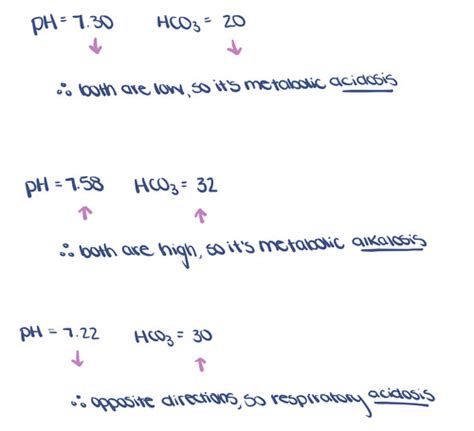 pH = 7.30 HCO₃ = 20
↓ ↓
∴ both are low, so it's metabolic acidosis
pH = 7.58 HCO₃ = 32
↑ ↑
∴ both are high, so it's metabolic alkalosis
pH = 7.22 HCO₃ = 30
↓ ↑
∴ opposite directions, so respiratory acidosis